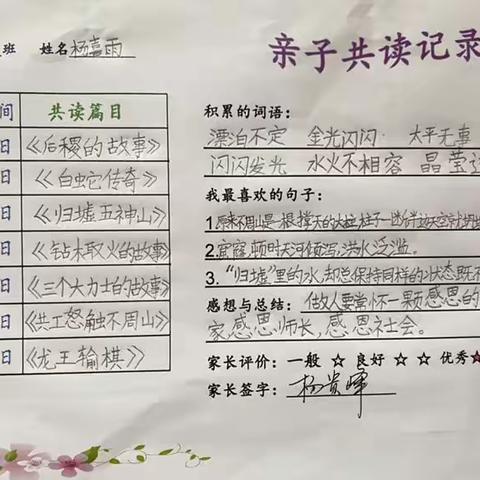 班 姓名 杨嘉雨
亲子共读记录
间 共读篇目
日 《后稷的故事》
日 《白蛇传奇》
日 《归墟五神山》
日 《钻木取火的故事》
日 《三个大力士的故事》
日 《共工怒触不周山》
日 《龙王输棋》
积累的词语：
漂泊不定 金光闪闪 太平无事
闪闪发光 水火不相容 晶莹
我最喜欢的句子：
1.原来不周山是一根撑天的大柱
2.窟窿,顿时天河倾泻,洪水泛滥。
3.“归墟”里的水,却总保持同样的状态,既不
感想与总结：做人要常怀一颗感恩的
家,感恩师长,感恩社会。
家长评价：一般 ☆ 良好 ☆ ☆ 优秀★
家长签字：杨贵峰